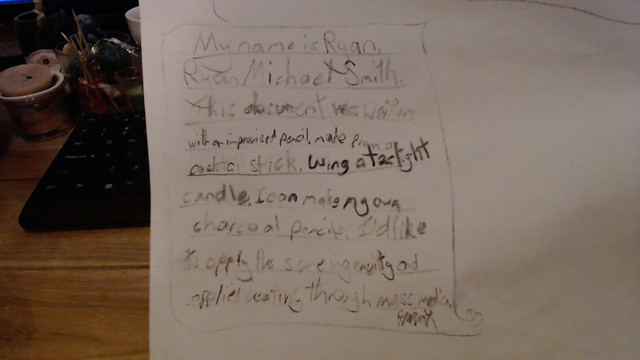 My name is Ryan,
Ryan Michael Smith.
This document was written
with an improvised pencil, made from a
cocktail stick. Using a tealight
candle, I can make my own
charcoal pencils. I'd like
to apply the same ingenuity and
applied creativity through mass media.